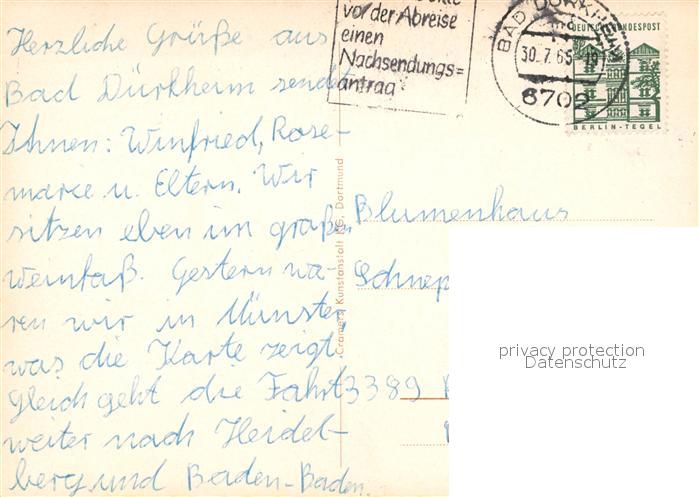 Herzliche Grüße aus
Bad Dürkheim sendet
Ihnen: Winfried, Rose-
marie u. Eltern. Wir
sitzen eben im großen
Weinfaß. Gestern wa-
ren wir in Münster,
was die Karte zeigt.
Gleich geht die Fahrt
weiter nach Heidel-
berg und Baden-Baden.
vor der Abreise
einen
Nachsendungs=
antrag
BAD DÜRKHEIM
30.7.65-19
6702
DEUTSCHE BUNDESPOST
BERLIN-TEGEL
Cramers Kunstanstalt KG, Dortmund
Blumenhaus
Schnep
3389
privacy protection
Datenschutz